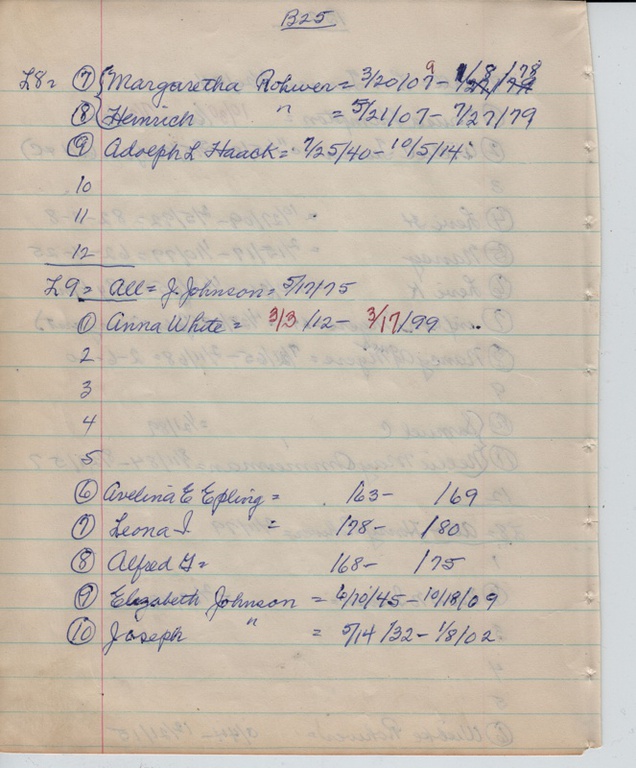 B25
L8= ⑦ Margaretha Rohwer = 3/20/07 - 1/8/78
⑧ Heinrich " = 5/21/07 - 7/27/79
⑨ Adolph L Haack = 7/25/40 - 10/5/14
10
11
12
L9 = All = J. Johnson = 5/17/75
① Anna White = 3/3/12 - 3/17/99
2
3
4
5
⑥ Avelina E Epling = /63 - /69
⑦ Leona I. " = /78 - /80
⑧ Alfred G = /68 - /75
⑨ Elizabeth Johnson = 6/10/45 - 10/18/09
⑩ Joseph " = 5/14/32 - 1/8/02